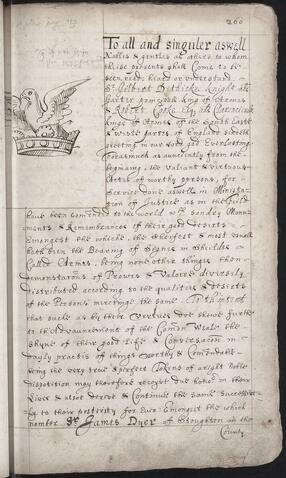 260
To all and singuler aswell
Nobles & gentles as others to whom
these presents shall Come to be
seen read heard or understand.
Sr Gilbert Dethicke Knight als
Garter prin Kinge of Armes
& Robte Cooke Esq als Clarencieulx
Kinge of Armes of the South East
& west partes of England sendeth
greeting in our Lord god Everlasting
forasmuch as aunciently from the
begining, the valiant & virtuous
Actes of worthy persons, for
service done aswell in Ministra
tion of Justice as in the feild
have been Comended to the world wth sondry Monu
ments & Remembrances of their good deserts
Emongest the whiche, the cheefest & most usuall
hath bin, the Bearing of Signes in Shields
Called Armes, being none other things then
demonstracons of Prowes & Valoure diversely
distributed according to the qualities & deserts
of the Persons meritinge the same. To thintent
that suche as by their Vertues doe shewe forthe
to the Advauncement of the Comon Weale the
shyne of their good Life & Conversacon in
dayly practis of things worthy & Comendable
being the very true & perfect Tokens of a right Noble
disposition may therefore receyve due honor in their
Lives & also derive & Continue the same Successive
ly to their posterity for Ever Emongest the which
nomber Sr James Dyer of Stoughton in the
County